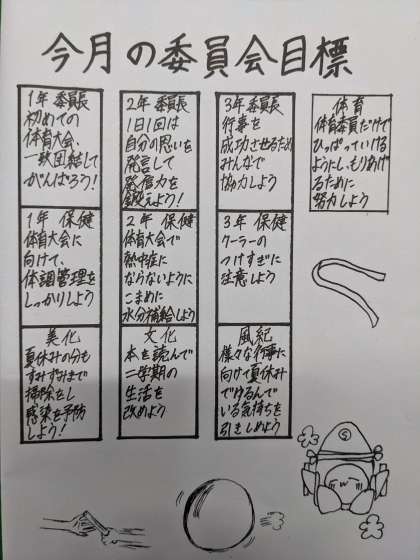 今月の委員会目標
1年 委員長
初めての
体育大会、
一致団結して
がんばろう!
2年 委員長
1日1回は
自分の思いを
発言して
発信力を
鍛えよう!
3年 委員長
行事を
成功させるため
みんなで
協力しよう
体育
体育委員だけで
ひっぱっていける
ようにし、もりあげ
るために
努力しよう
1年 保健
体育大会に
向けて、
体調管理を
しっかりしよう
2年 保健
体育大会で
熱中症に
ならないように
こまめに
水分補給しよう
3年 保健
クーラーの
つけすぎに
注意しよう
美化
夏休みの分も
すみずみまで
掃除をし
感染を予防
しよう!
文化
本を読んで
二学期の
生活を
改めよう
風紀
様々な行事に
向けて夏休み
でゆるんで
いる気持ちを
引きしめよう